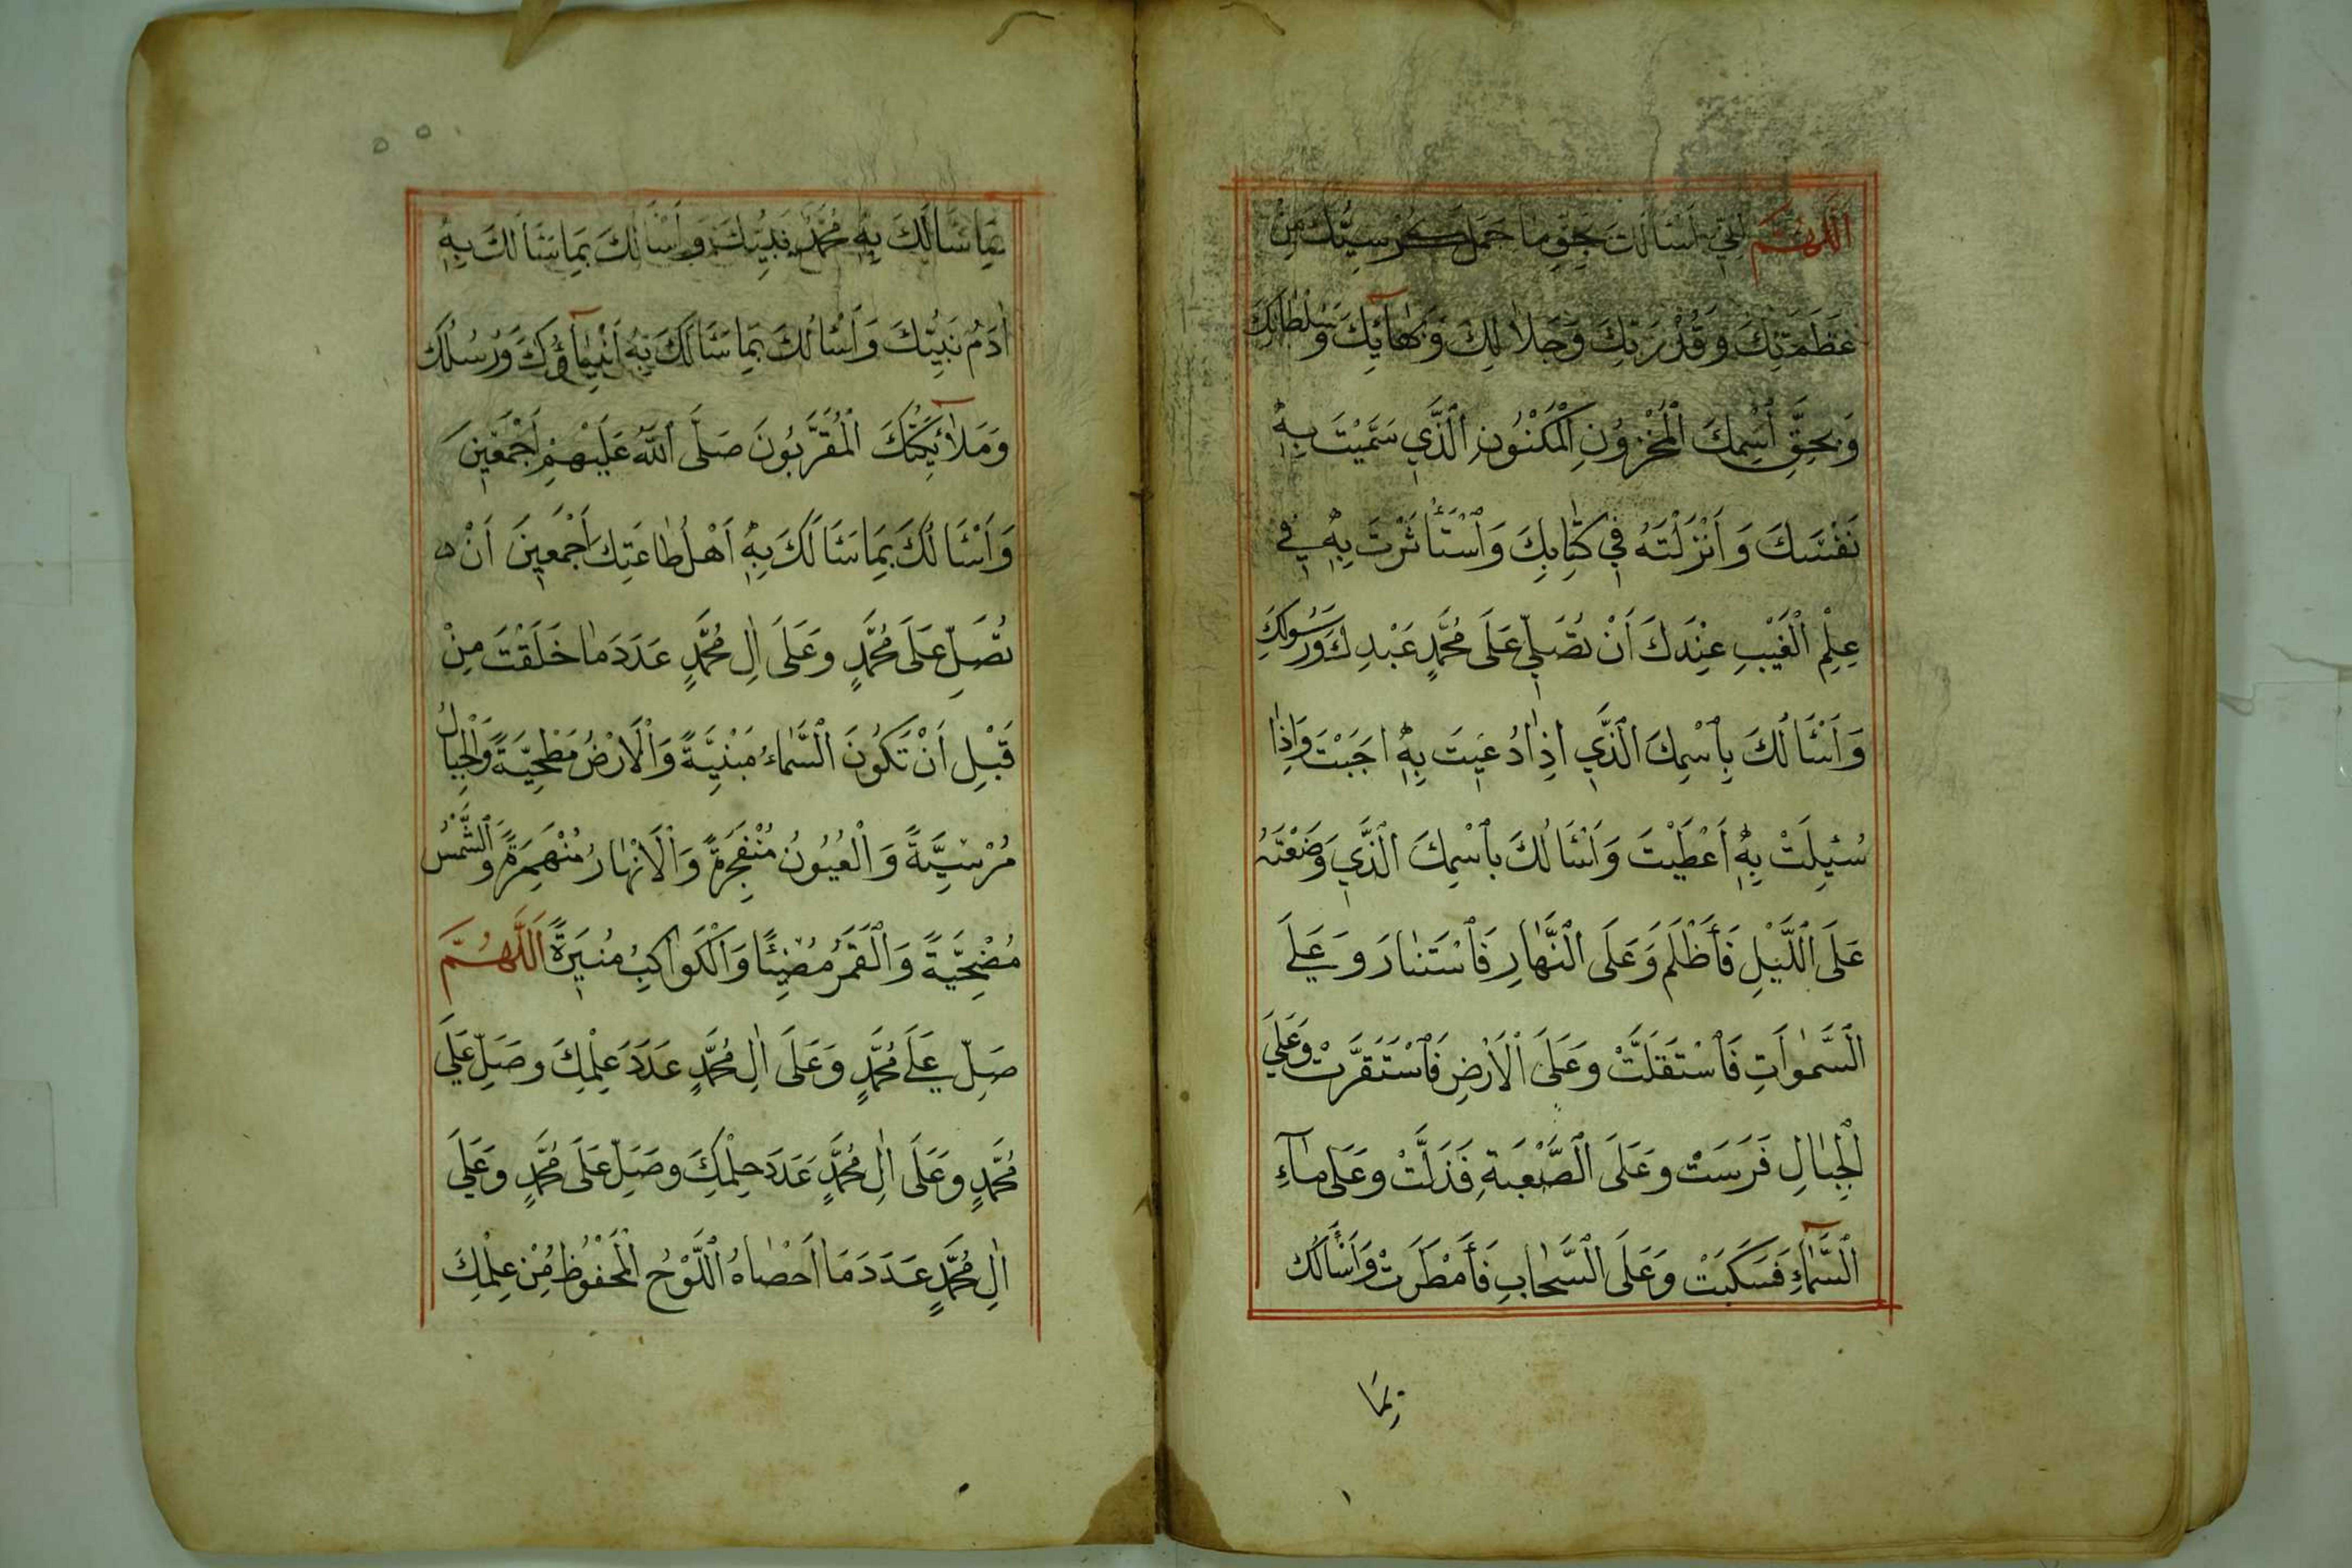 اَللّٰهُمَّ اِنِّي اَسْاَلُكَ بِحَقِّ مٰا حَمَلَ كُرْسِيُّكَ مِنْ
عَظَمَتِكَ وَقُدْرَتِكَ وَجَلاٰلِكَ وَبَهٰآئِكَ وَسُلْطٰانِكَ
وَبِحَقِّ اسْمِكَ الْمَخْزُونِ الْمَكْنُونِ الَّذِي سَمَّيْتَ بِهٖ
نَفْسَكَ وَاَنْزَلْتَهُ فِي كِتٰابِكَ وَاسْتَأْثَرْتَ بِهٖ فِي
عِلْمِ الْغَيْبِ عِنْدَكَ اَنْ تُصَلِّيَ عَلَى مُحَمَّدٍ عَبْدِكَ وَرَسُولِكَ
وَاَسْاَلُكَ بِاسْمِكَ الَّذِي اِذٰا دُعِيتَ بِهٖ اَجَبْتَ وَاِذٰا
سُئِلْتَ بِهٖ اَعْطَيْتَ وَاَسْاَلُكَ بِاسْمِكَ الَّذِي وَضَعْتَهُ
عَلَى اللَّيْلِ فَأَظْلَمَ وَعَلَى النَّهٰارِ فَاسْتَنٰارَ وَعَلَى
السَّمٰوَاتِ فَاسْتَقَلَّتْ وَعَلَى الْاَرْضِ فَاسْتَقَرَّتْ وَعَلَى
الْجِبٰالِ فَرَسَتْ وَعَلَى الصَّعْبَةِ فَذَلَّتْ وَعَلَى مٰآءِ
السَّمٰآءِ فَسَكَبَتْ وَعَلَى السَّحٰابِ فَأَمْطَرَتْ وَاَسْأَلُكَ
بِمَا
بِمَا سَاَلَكَ بِهٖ مُحَمَّدٌ نَبِيُّكَ وَاَسْاَلُكَ بِمَا سَاَلَكَ بِهٖ
اٰدَمُ نَبِيُّكَ وَاَسْاَلُكَ بِمَا سَاَلَكَ بِهٖ اَنْبِيٰآؤُكَ وَرُسُلُكَ
وَمَلاٰئِكَتُكَ الْمُقَرَّبُونَ صَلَّى اللّٰهُ عَلَيْهِمْ اَجْمَعِينَ
وَاَسْاَلُكَ بِمَا سَاَلَكَ بِهٖ اَهْلُ طٰاعَتِكَ اَجْمَعِينَ اَنْ
تُصَلِّ عَلَى مُحَمَّدٍ وَعَلَى اٰلِ مُحَمَّدٍ عَدَدَ مٰا خَلَقْتَ مِنْ
قَبْلِ اَنْ تَكُونَ السَّمٰاءُ مَبْنِيَّةً وَالْاَرْضُ مَطْحِيَّةً وَالْجِبَالُ
مُرْسِيَّةً وَالْعُيُونُ مُنْفَجِرَةً وَالْاَنْهٰارُ مُنْهَمِرَةً وَالشَّمْسُ
مُضْحِيَّةً وَالْقَمَرُ مُضِيْئًا وَالْكَوٰاكِبُ مُنِيرَةً اَللّٰهُمَّ
صَلِّ عَلَى مُحَمَّدٍ وَعَلَى اٰلِ مُحَمَّدٍ عَدَدَ عِلْمِكَ وَصَلِّ عَلَى
مُحَمَّدٍ وَعَلَى اٰلِ مُحَمَّدٍ عَدَدَ حِلْمِكَ وَصَلِّ عَلَى مُحَمَّدٍ وَعَلَى
اٰلِ مُحَمَّدٍ عَدَدَ مَا اَحْصٰاهُ اللَّوْحُ الْمَحْفُوظُ مِنْ عِلْمِكَ